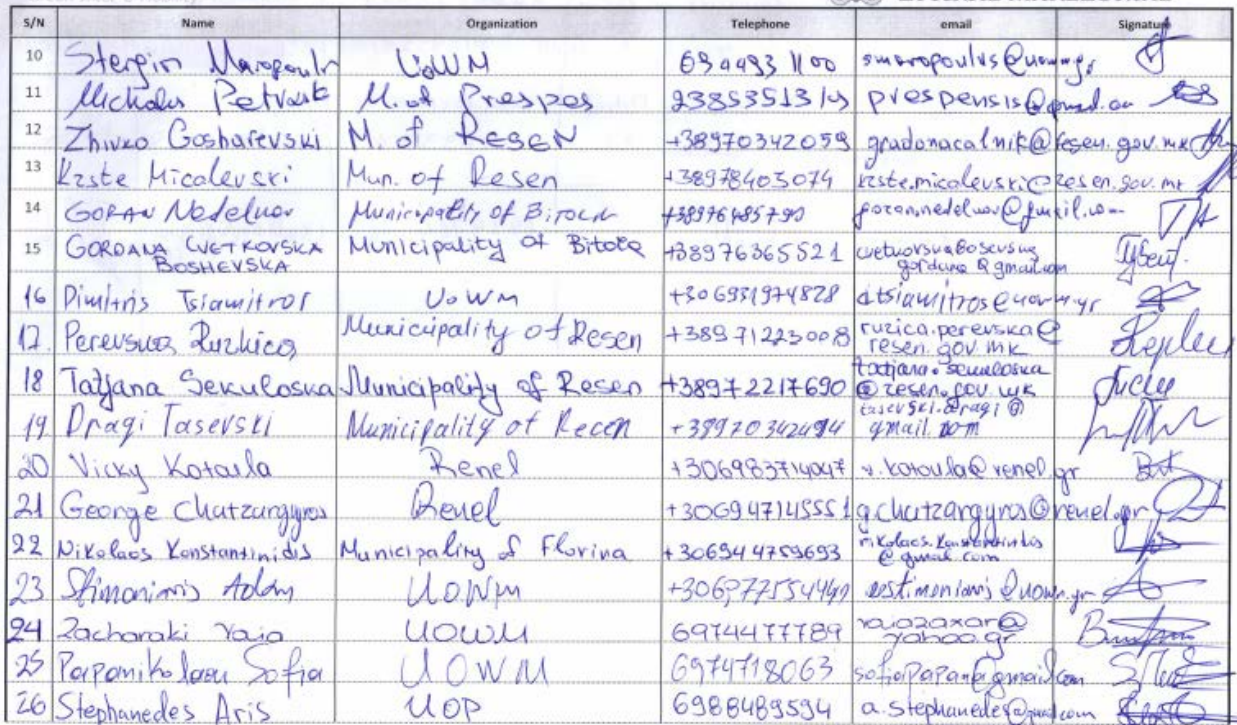 S/N Name Organization Telephone email Signature
10 Stergios Maropoulos UoWM 694493 1100 smaropoulos@uowm.gr
11 M. of Prespes prespensis@gmail.com
12 Zhivko Gosharevski M. of Resen +38970342059 gradonacalnik@resen.gov.mk
13 Krste Micalevski Mun. of Resen +38978403074 krste.micalevski@resen.gov.mk
14 Goran Nedelkov Municipality of Bitola +38976485790
15 GORDANA CVETKOVSKA Municipality of Bitola +38976365521
BOSHEVSKA gordana@gmail.com
16 Dimitris Tsiamitros UoWM +306931974828 dtsiamitros@uowm.gr
17. Perevska Ruzhica Municipality of Resen +38971223008 ruzica.perevska@
resen.gov.mk
18 Tatjana Sekuloska Municipality of Resen +38972217690 tatjana.sekuloska
@resen.gov.mk
19 Dragi Tasevski Municipality of Resen +38970342494 tasevski.dragi@
gmail.com
20 Vicky Kotoula Renel +306983714047 v.kotoula@renel.gr
21 George Chatzargyros Renel +306947145551 g.chatzargyros@renel.gr
22 Nikolaos Konstantinidis Municipality of Florina +306944759693 nikolaos.konstantinidis
@gmail.com
23 Stimoniaris Adam UOWM astimoniaris@uowm.gr
24 Zacharaki Vaia UOWM 6974477789 vaiazaxar@
yahoo.gr
25 Papanikolaou Sofia UOWM 6974718063 sofiapapana@gmail.com
26 Stephanedes Aris UOP 6988489594 a.stephanedes@gmail.com